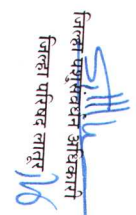 जिल्हा पशुसंवर्धन अधिकारी
जिल्हा परिषद लातूर